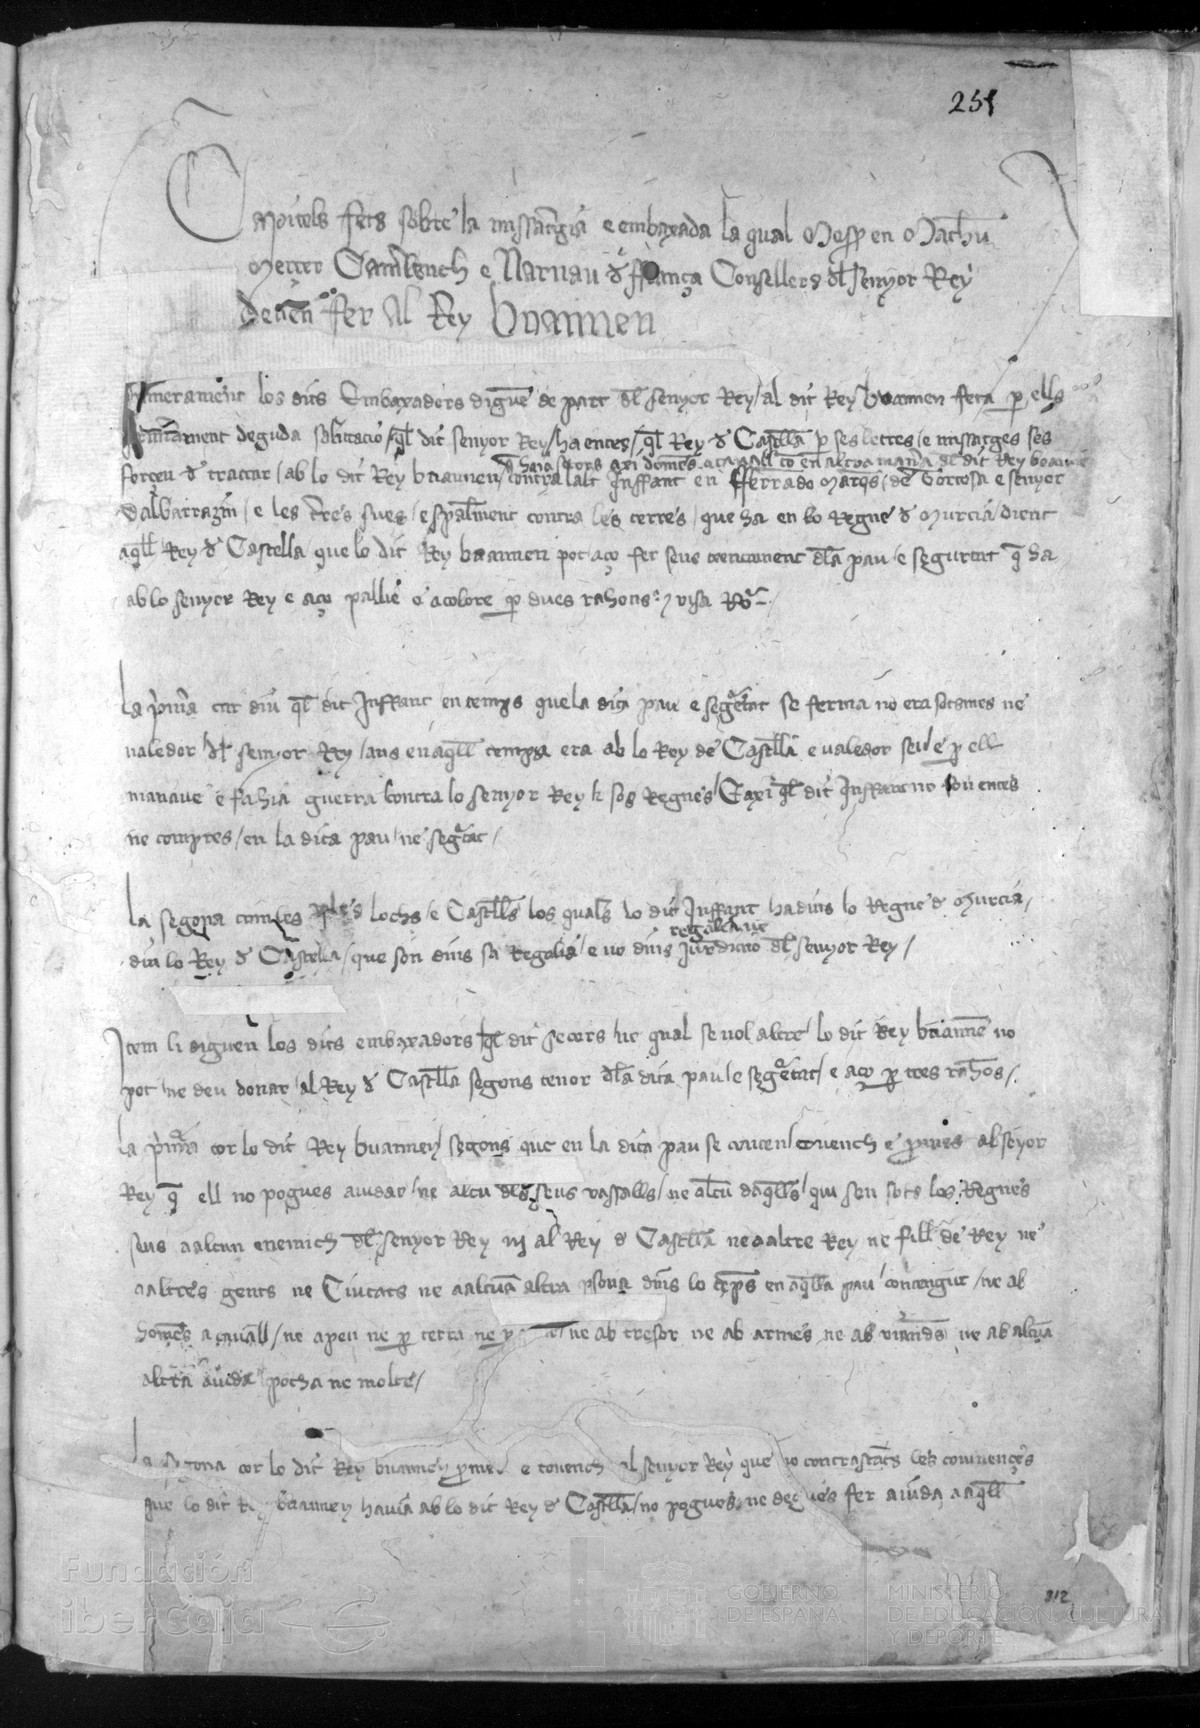 251
Capitols fets sobre la missatgeria e embaxada la qual Mossen en Matheu
Mercer Camarlench e Narnau de ffrança Consellers del Senyor Rey
deuen fer Al Rey buannen
Primerament los dits Embaxadors diguen de part del senyor Rey / al dit Rey buannen feta per ells
primerament deguda salutacio / quel dit senyor Rey / ha entes / quel Rey de Castella per ses letres / e missatges ses
que haia secors axi domens a cavall com en altra manera del dit Rey buannen
forçeu de tractar / ab lo dit Rey buannen / contra lalt Inffant en fferrando Marques / de Tortosa e senyor
dalbarrazin / e les terres sues / e specialment contra les terres / que ha en lo Regne de Murcia dient
aquell Rey de Castella / que lo dit Rey buannen pot aço fer sens trencament dela pau / e seguretat que ha
ab lo senyor Rey e aço pallie e acolore per dues rahons
La primera car diu quel dit Inffant en temps que la dita pau e seguretat se ferma no era sotsmes ne
valedor del senyor Rey / ans en aquell temps era ab lo Rey de Castella e valedor seu / e per ell
manave e fahia guerra contra lo senyor Rey e sos Regnes / E axi quel dit Inffant no fou entes
ne compres / en la dita pau / ne seguretat /
La segona com les lochs / e Castells los quals lo dit Inffant ha dins lo Regne de Murcia /
regalia ne
diu lo Rey de Castella / que son dins sa Regalia / e no dins Jurediccio del senyor Rey /
Item li diguen los dits embaxadors quel dit secors ne qual se vol altre / lo dit Rey buannen no
pot / ne deu donar / al Rey de Castella segons tenor dela dita pau / e seguretat / e aço per tres rahons /.
La primera cor lo dit Rey buannen / segons que en la dita pau se conten / convench e promes al senyor
Rey que ell no pogues aiudar / ne altun dels seus vassalls / ne altun daquells / qui sien sots los Regnes
seus a altun enemich del senyor Rey ni al Rey de Castella ne a altre Rey ne fill de Rey ne
a altres gents ne Ciutats ne a altuna altra persona dins lo temps en aquella pau contengut / ne ab
homens a cavall / ne a peu ne per terra ne per ne ab tresor ne ab armes ne ab viandes ne ab altuna
altra aiuda pocha ne molta /
La segona cor lo dit Rey buannen promes e convench al senyor Rey que no contrastants les convinençes
que lo dit Rey buannen havia ab lo dit Rey de Castella / no pogues ne degues fer aiuda a aquell
312
Fundación
iberCaja
GOBIERNO
DE ESPAÑA
MINISTERIO
DE EDUCACIÓN, CULTURA
Y DEPORTE